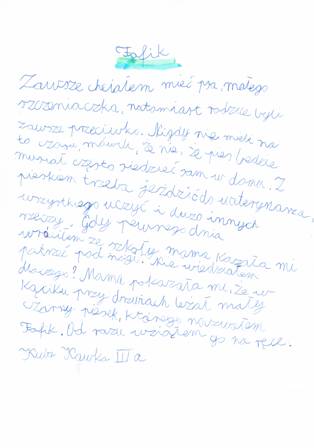 Fafik
Zawsze chciałem mieć psa, małego
szczeniaczka, natomiast rodzice byli
zawsze przeciwko. Nigdy nie mieli na
to czasu, mówili, że nie, że pies będzie
musiał często siedzieć sam w domu. Z
pieskiem trzeba jeździć do weterynarza,
wszystkiego uczyć i dużo innych
rzeczy. Gdy pewnego dnia
wróciłem ze szkoły mama kazała mi
patrzeć pod nogi. Nie wiedziałem
dlaczego? Mama pokazała mi, że w
kąciku przy drzwiach leżał mały
czarny piesek, którego nazwałem
Fafik. Od razu wziąłem go na ręce.
Kuba Kawka III a